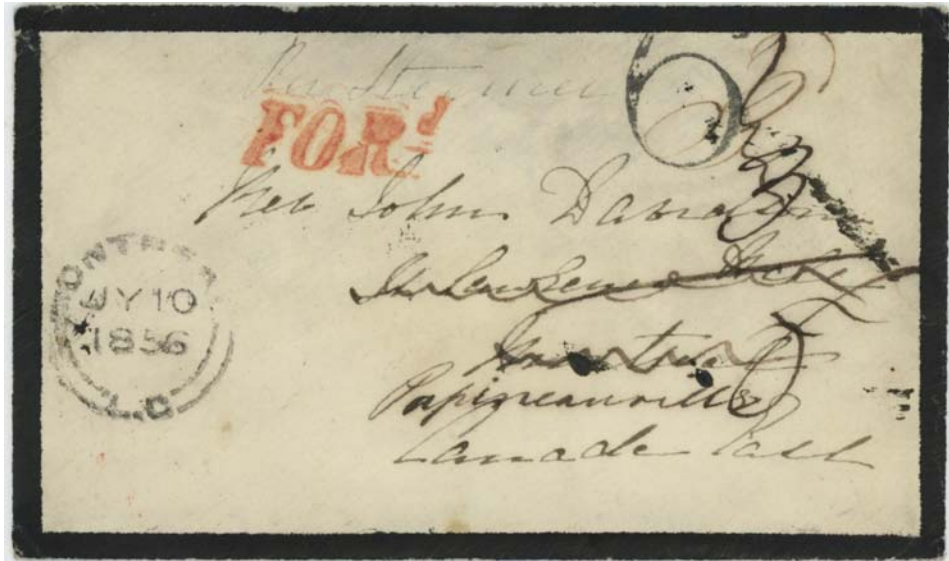 Per Steamer
6
FORᵈ
Rev John Davidson
St Lawrence Hotel
Montreal
Papineauville
Canada East
MONTREAL
JY 10
1856
L.C